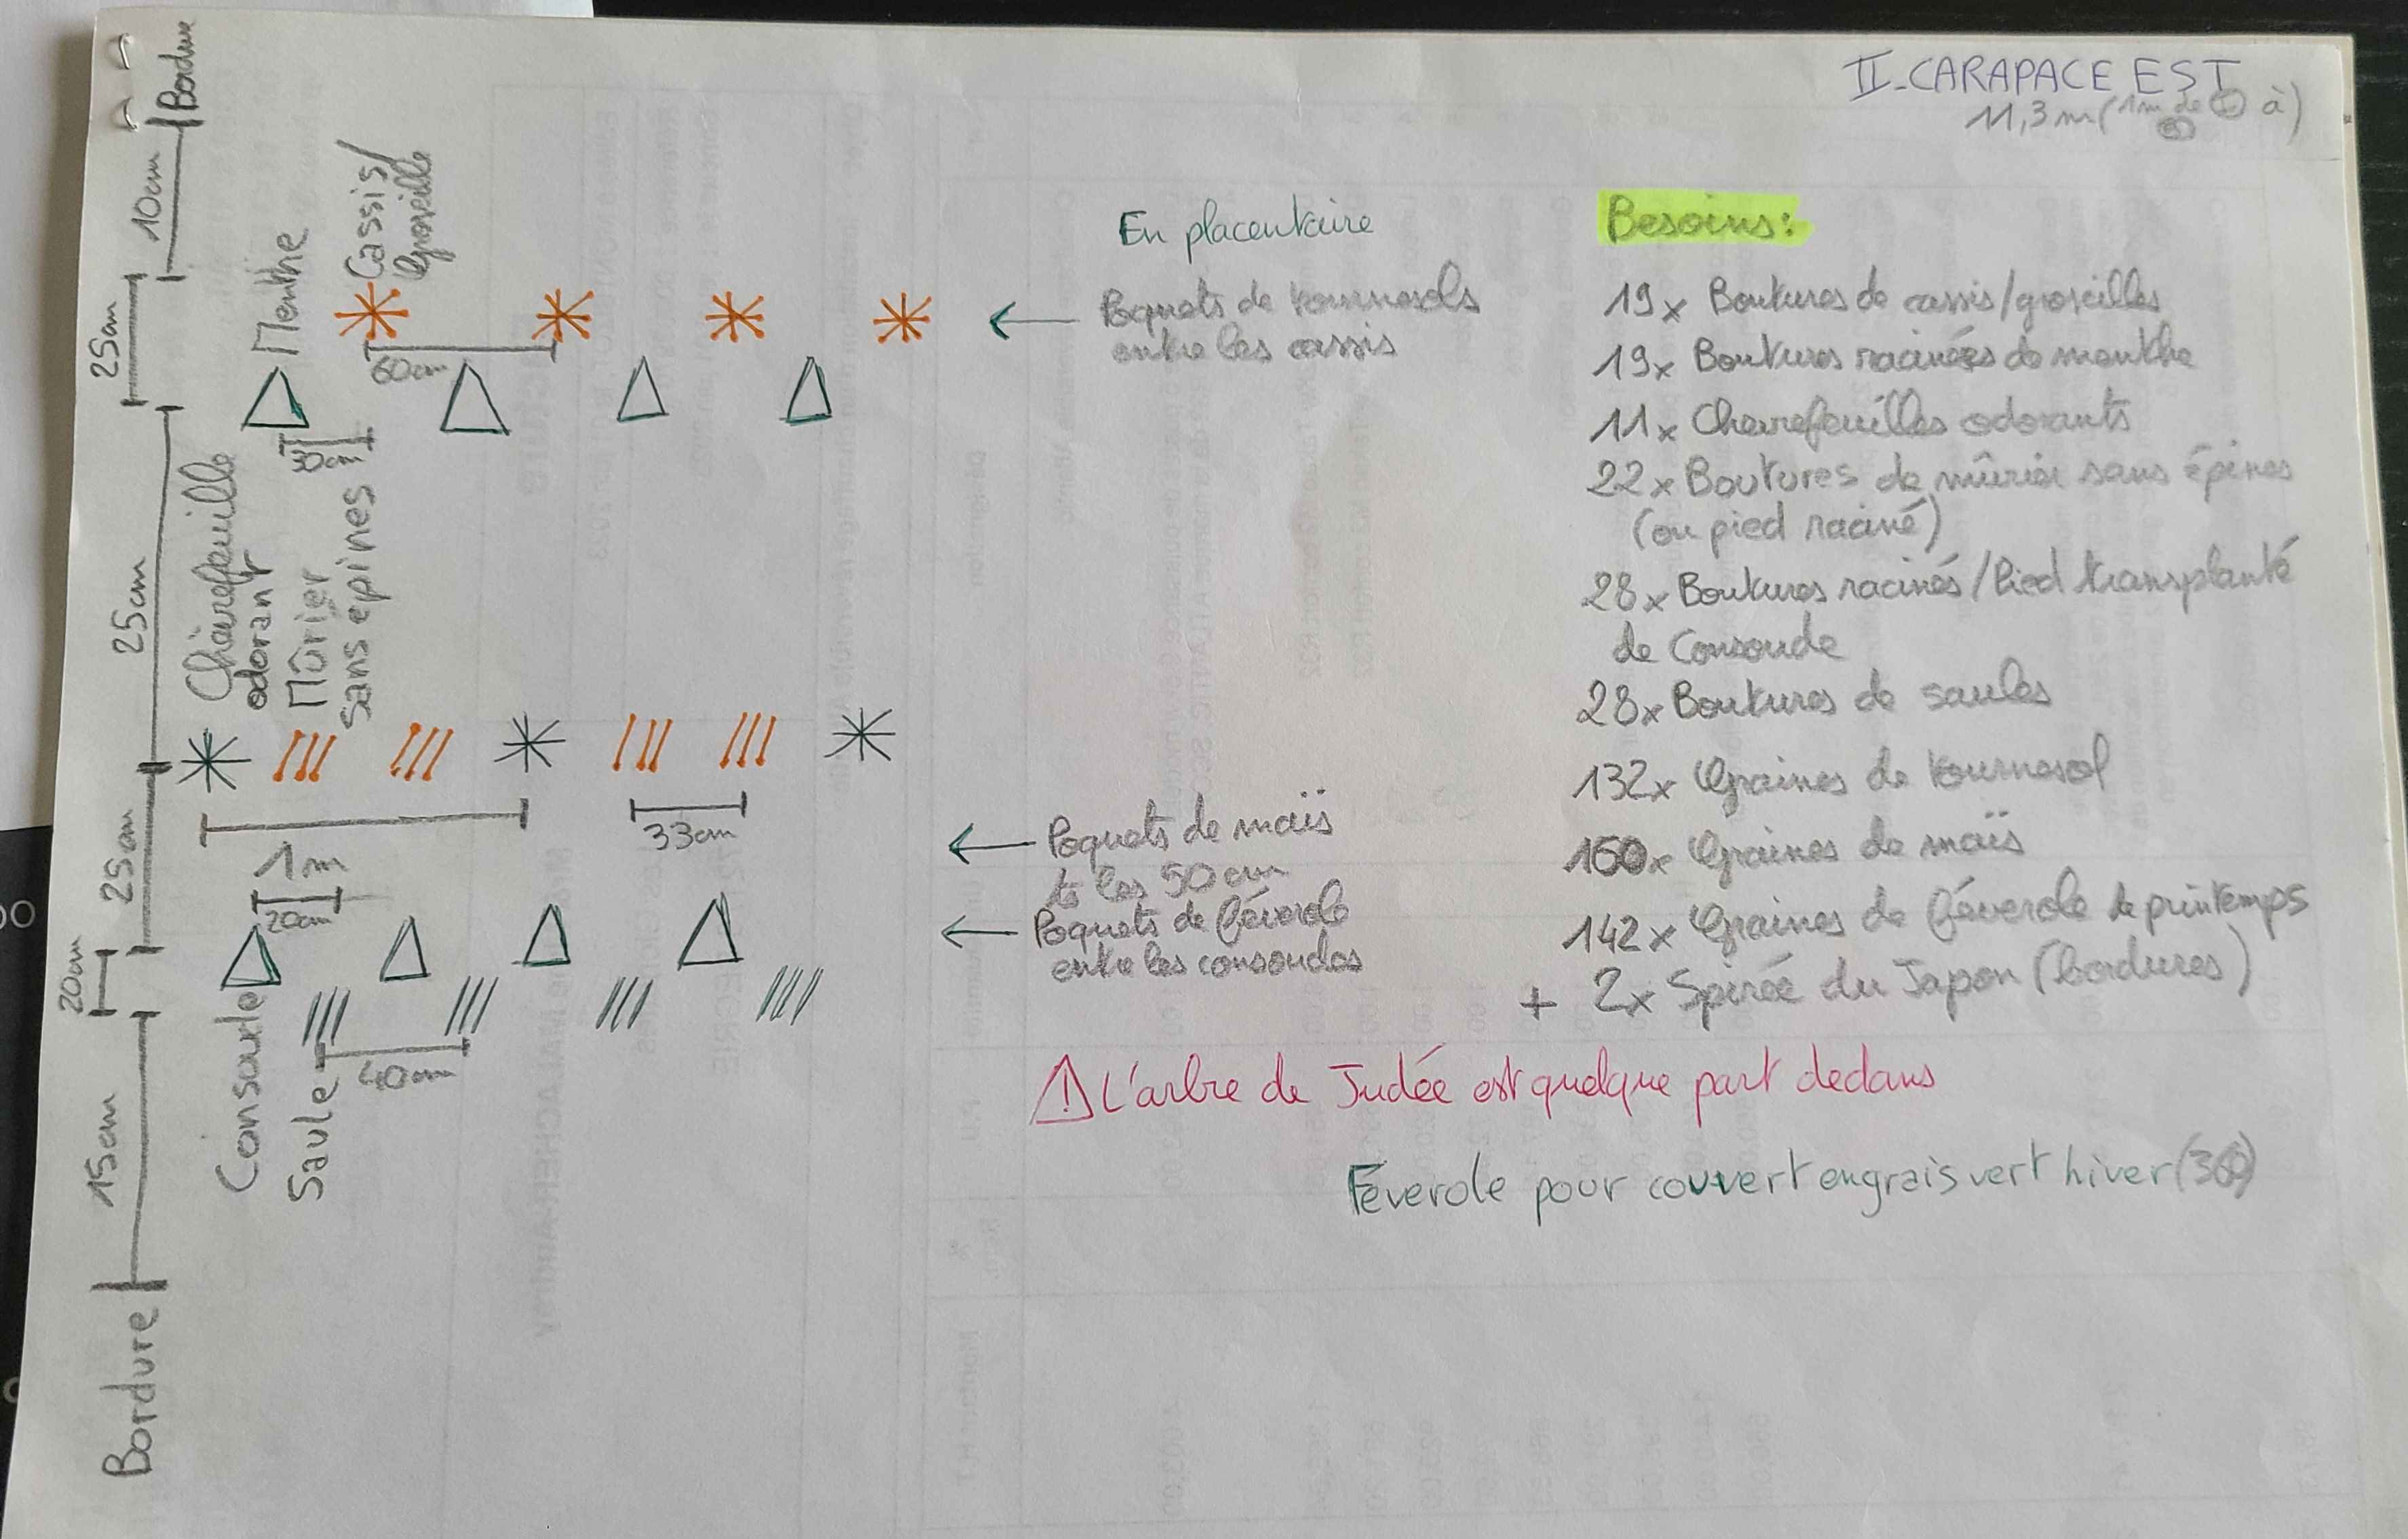 II-CARAPACE EST
11,3m (1m de à)
Bordure
10cm
25cm
25cm
25cm
20cm
15cm
Bordure
Menthe
Cassis/
Groseille
60cm
30cm
Chèvrefeuille
odorant
Mûrier
sans épines
1m
33cm
20cm
Consoude
Saule
40cm
En placentaire
Poquets de tournesols
entre les cassis
Poquets de maïs
ts les 50cm
Poquets de féverole
entre les consoudes
Besoins:
19x Boutures de cassis/groseilles
19x Boutures racinées de menthe
11x Chevrefeuilles odorants
22x Boutures de mûrier sans épines
(ou pied raciné)
28x Boutures racinés/Pied transplanté
de Consoude
28x Boutures de saules
132x Graines de tournesol
160x Graines de maïs
142x Graines de féverole de printemps
+ 2x Spirée du Japon (bordures)
! L'arbre de Judée est quelque part dedans
Féverole pour couvert engrais vert hiver